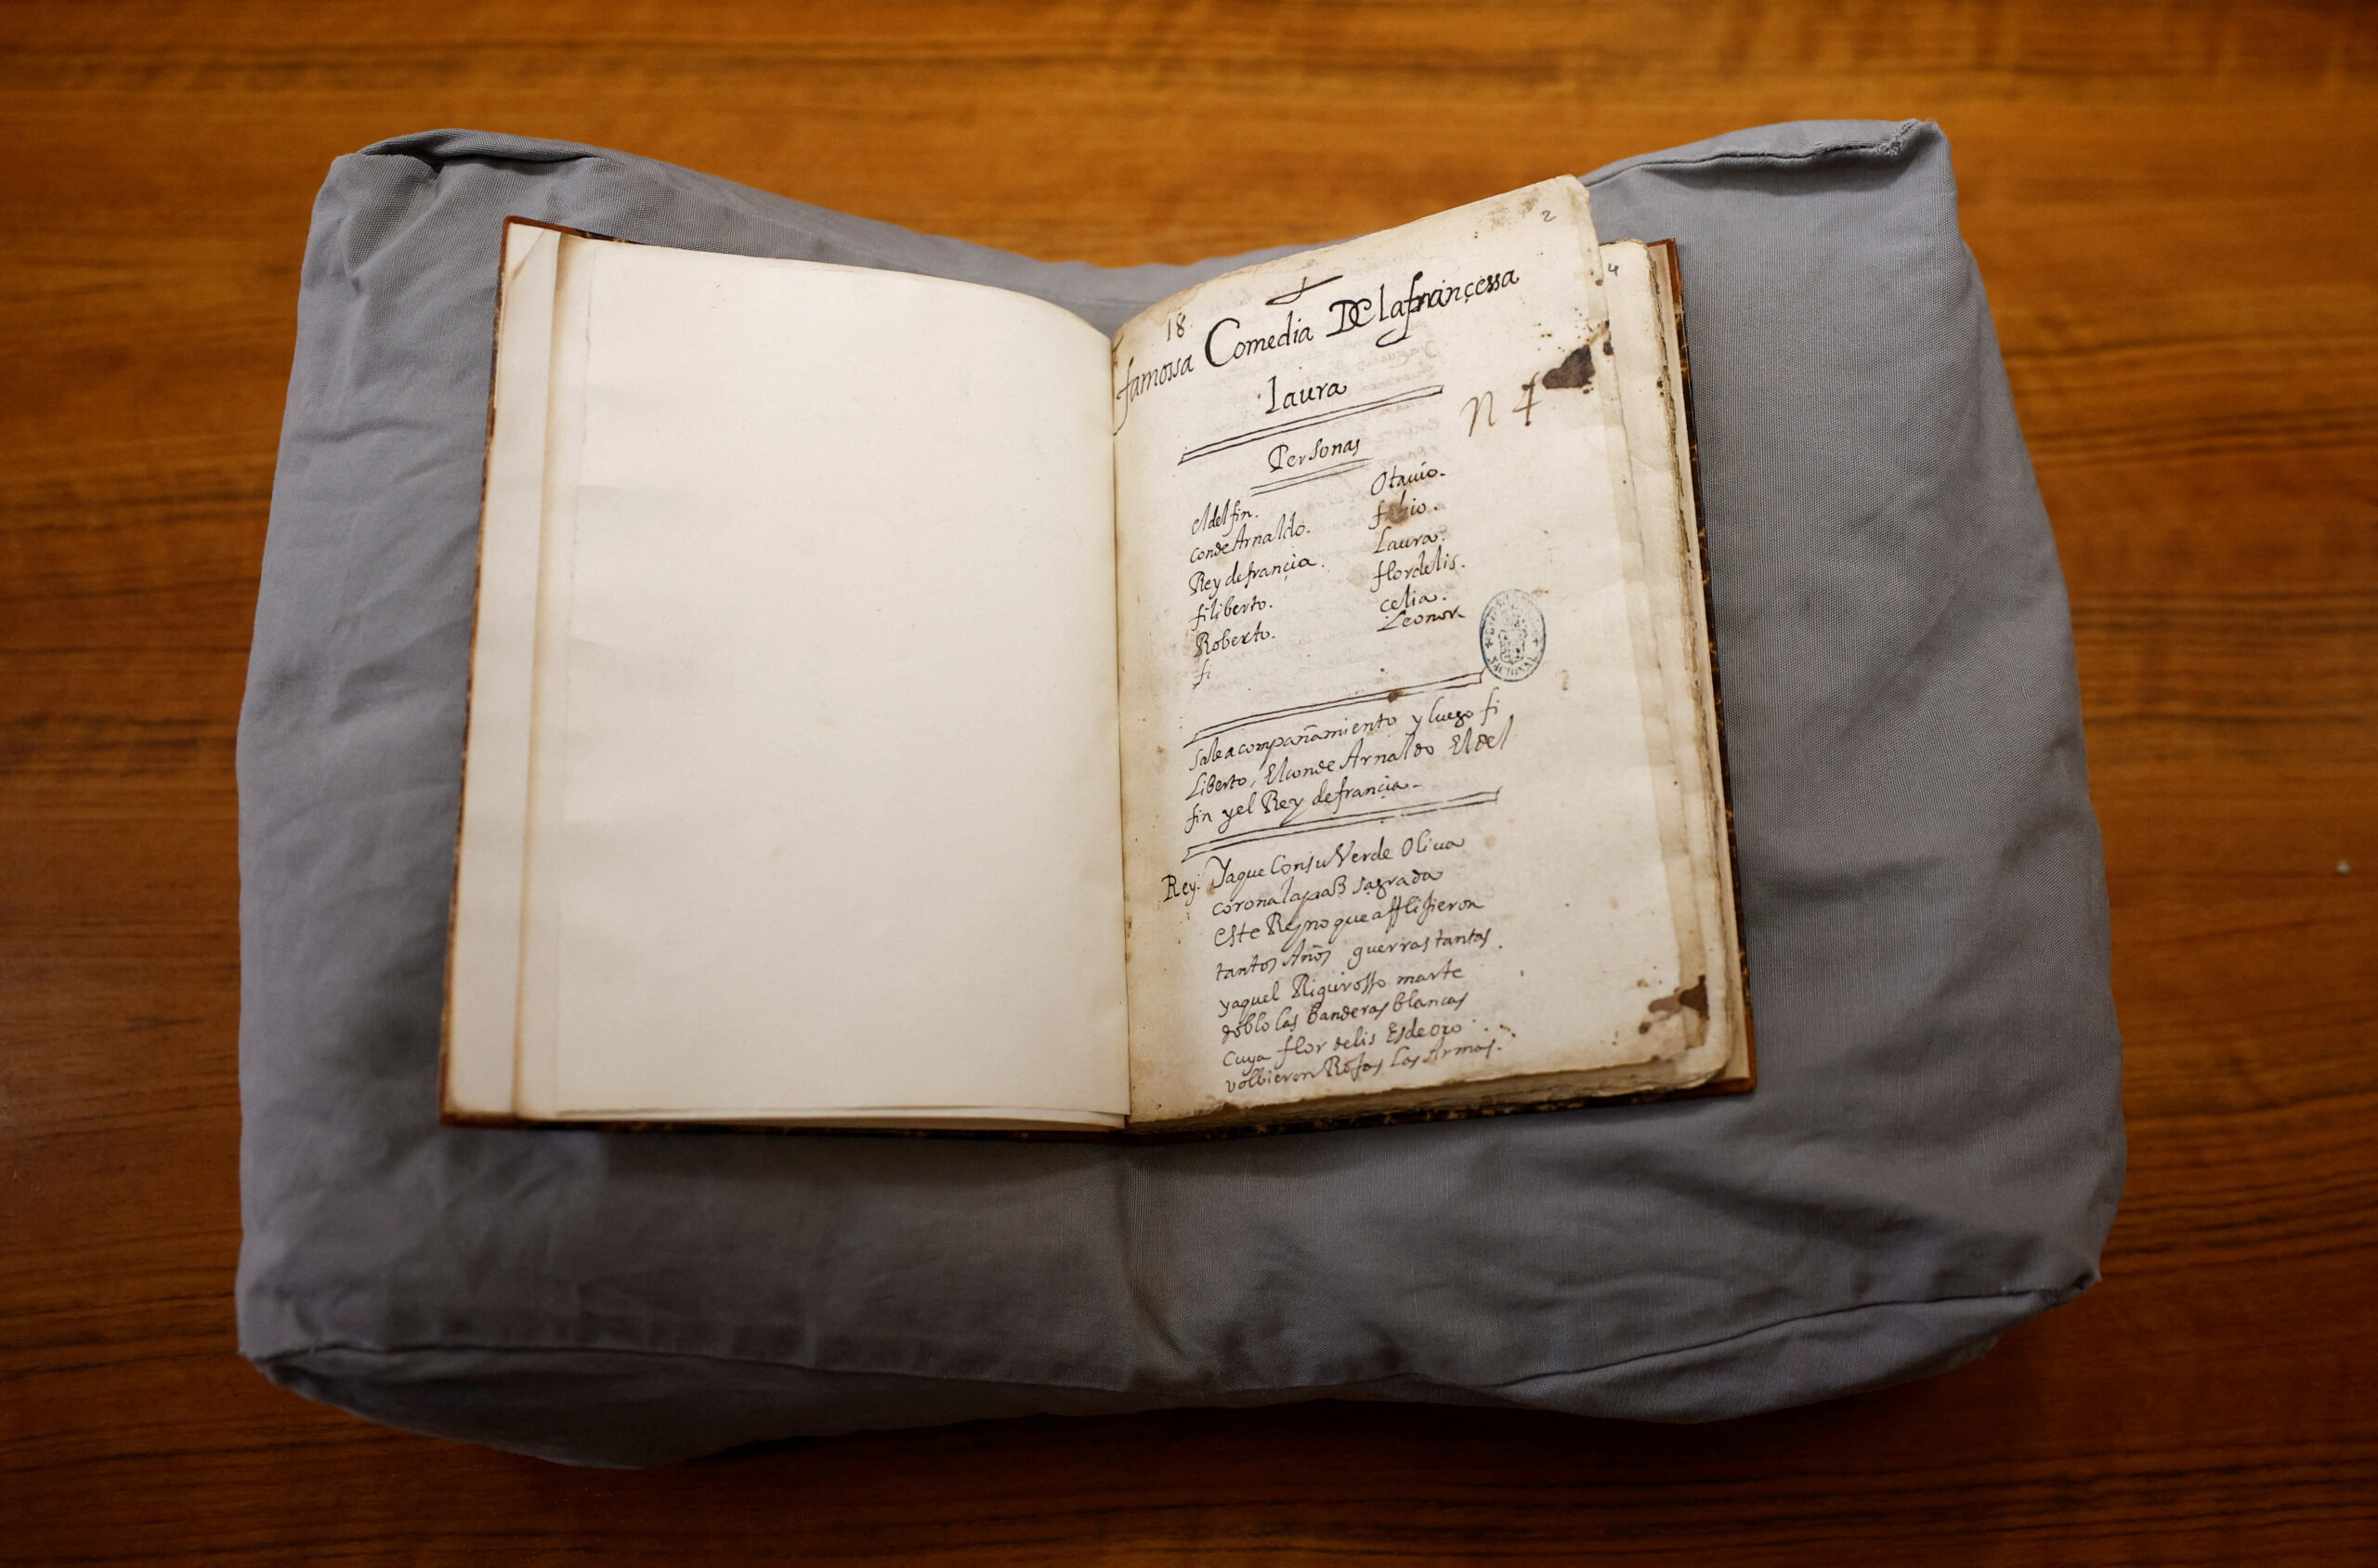 2
4
18
famossa Comedia De la françessa
laura
n 4
Personas
el delfin.
conde Arnaldo.
Rey de françia.
filiberto.
Roberto.
fi
Otauio.
fabio.
Laura.
flordelis.
celia.
Leonor
Sale acompañamiento y luego fi
liberto, El conde Arnaldo El del
fin y el Rey de françia.
Rey. Ya que Con su Verde Oliua
corona la paß sagrada
este Reyno que afflijieron
tantos Años guerras tantas.
y aquel Rigurosso marte
doblo las banderas blancas
Cuya flor delis Es de oro
volbieron Rojas Las Armas.
NACIONAL